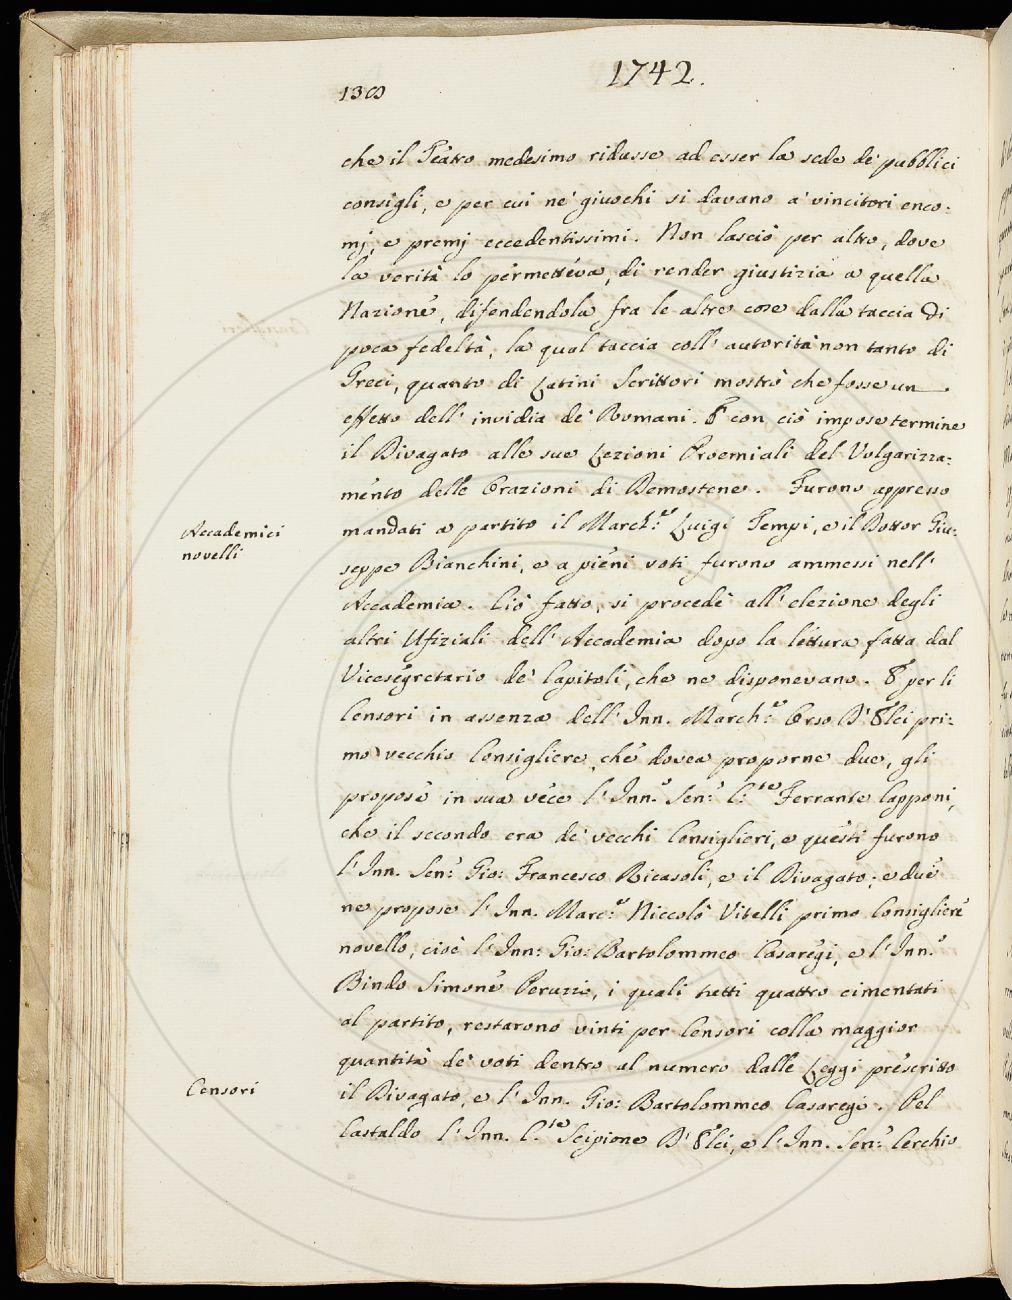 1742.
130
che il Teatro medesimo ridusse ad esser la sede de' pubblici
consigli, e per cui ne' giuochi si davano a' vincitori enco-
mj, e premj eccedentissimi. Non lasciò per altro, dove
la verità lo permetteva, di render giustizia a quella
Nazione, difendendola fra le altre cose dalla taccia di
poca fedeltà, la qual taccia coll' autorità non tanto di
Greci, quanto di Latini Scrittori mostrò che fosse un
effetto dell' invidia de' Romani. E con ciò impose termine
il Divagato alle sue Lezioni Proemiali del Volgarizza-
mento delle Orazioni di Demostene. Furono appresso
Accademici
novelli
mandati a partito il March.se Luigi Tempi, e il Dottor Giu-
seppe Bianchini, e a pieni voti furono ammessi nell'
Accademia. Ciò fatto, si procedè all' elezione degli
altri Ufiziali dell' Accademia dopo la lettura fatta dal
Vicesegretario de' Capitoli, che ne disponevano. E per li
Censori in assenza dell' Inn. March.se Orso D' Elci pri-
mo vecchio Consigliere, che dovea proporne due, gli
propose in sua vece l' Inn.o Sen.e C.te Ferrante Capponi,
che il secondo era de' vecchi Consiglieri, e questi furono
l' Inn. Sen.e Gio: Francesco Ricasoli, e il Divagato; e due
ne propose l' Inn. Marc.se Niccolò Vitelli primo Consigliere
novello, cioè l' Inn: Gio: Bartolommeo Casaregi, e l' Inn.o
Bindo Simone Peruzzi, i quali tutti quattro cimentati
al partito, restarono vinti per Censori colla maggior
quantità de' voti dentro al numero dalle Leggi prescritto
Censori
il Divagato, e l' Inn. Gio: Bartolommeo Casaregi. Pel
Castaldo l' Inn. C.te Scipione D' Elci, e l' Inn. Sen.e Cerchio